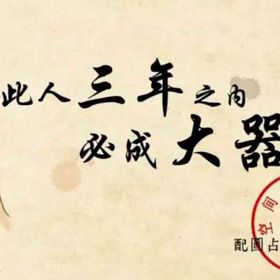 此人三年之内
必成大器
空间
配圖占